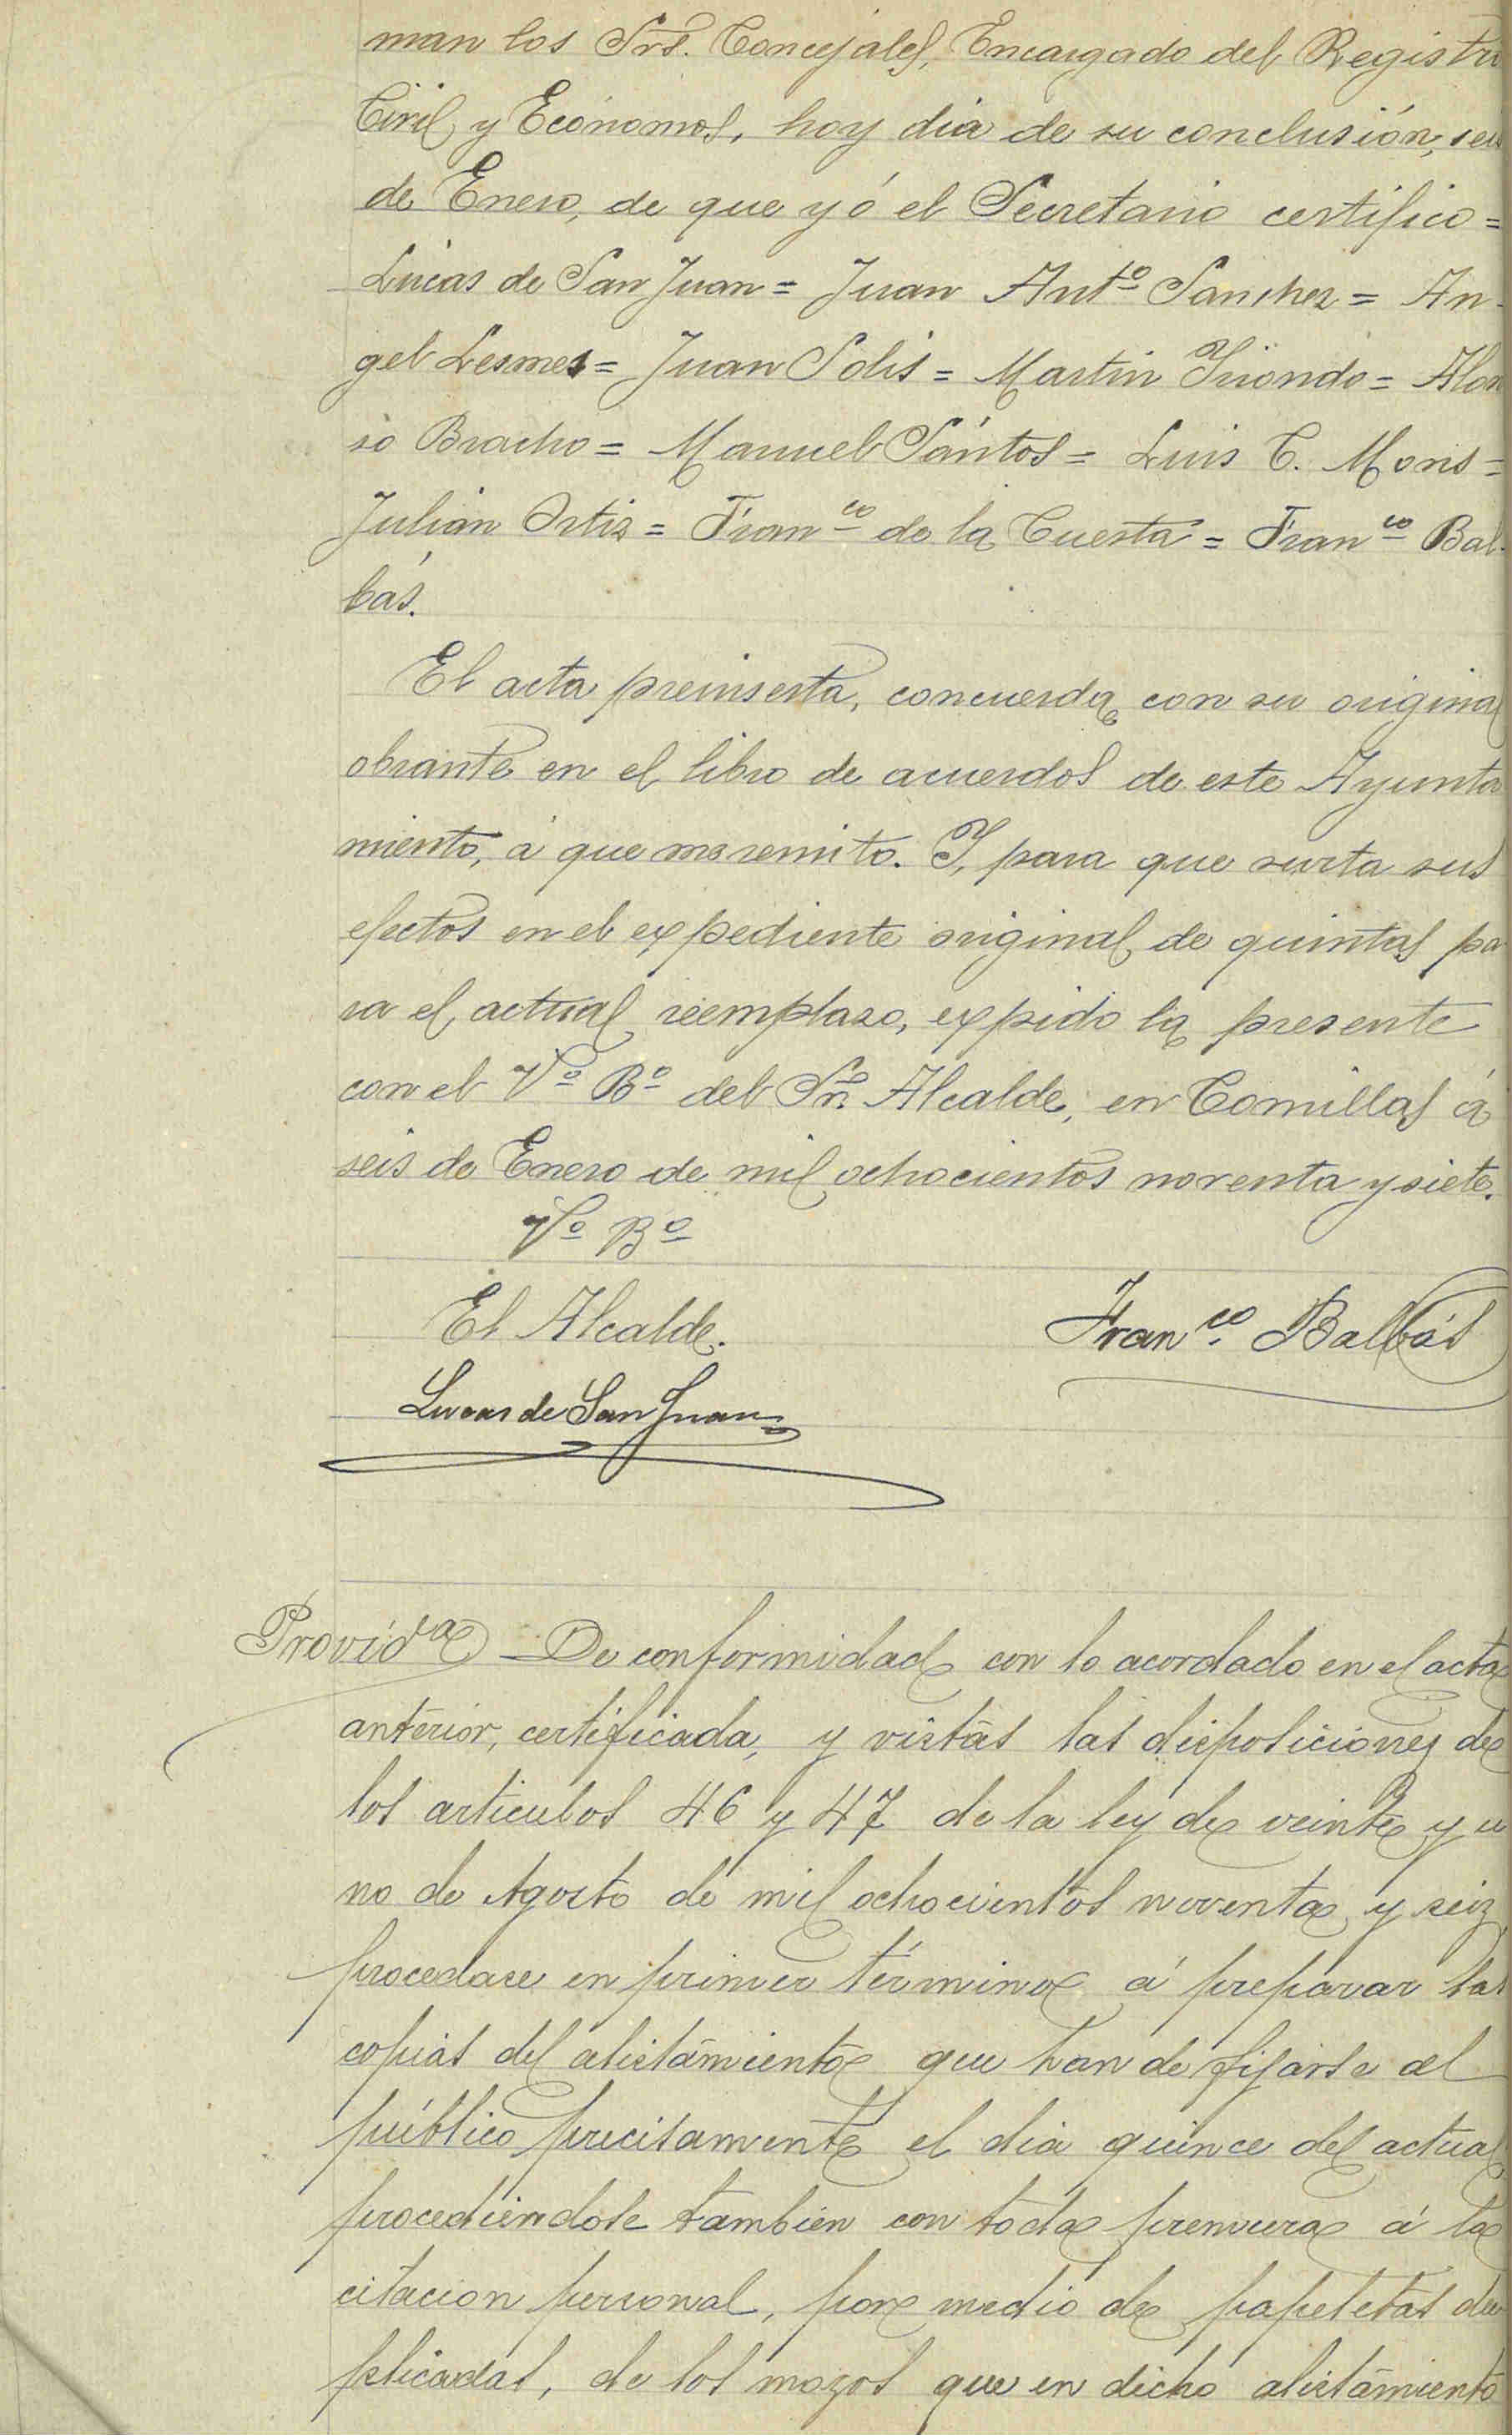 man los Srs. Concejales, Encargado del Registro
Civil y Ecónomos, hoy dia de su conclusión, seis
de Enero, de que yó el Secretario certifico =
Lucas de San Juan = Juan Antº Sanchez = An-
gel Lesmes = Juan Solis = Martin Yriondo = Alon
so Bracho = Manuel Sántos = Luis C. Moris =
Julián Ortiz = Franco de la Cuesta = Franco Bal-
bás.
El acta preinserta, concuerda con su original
obrante en el libro de acuerdos de este Ayunta
miento, á que me remito. Y, para que surta sus
efectos en el expediente original de quintas pa
ra el actual reemplazo, expido la presente
con el Vº Bº del Sr. Alcalde, en Comillas á
seis de Enero de mil ochocientos noventa y siete.
Vº Bº
El Alcalde.
Franco Balbás
Lucas de San Juan
Provida De conformidad con lo acordado en el acta
anterior, certificada, y vistas las disposiciones de
los articulos 46 y 47 de la ley de veinte y u
no de Agosto de mil ochocientos noventa y seis,
procedase en primer término á preparar las
copias del alistamiento que han de fijarse al
público precisamente el dia quince del actual
procediendose tambien con toda premura á la
citacion personal, por medio de papeletas du
plicadas, de los mozos que en dicho alistamiento